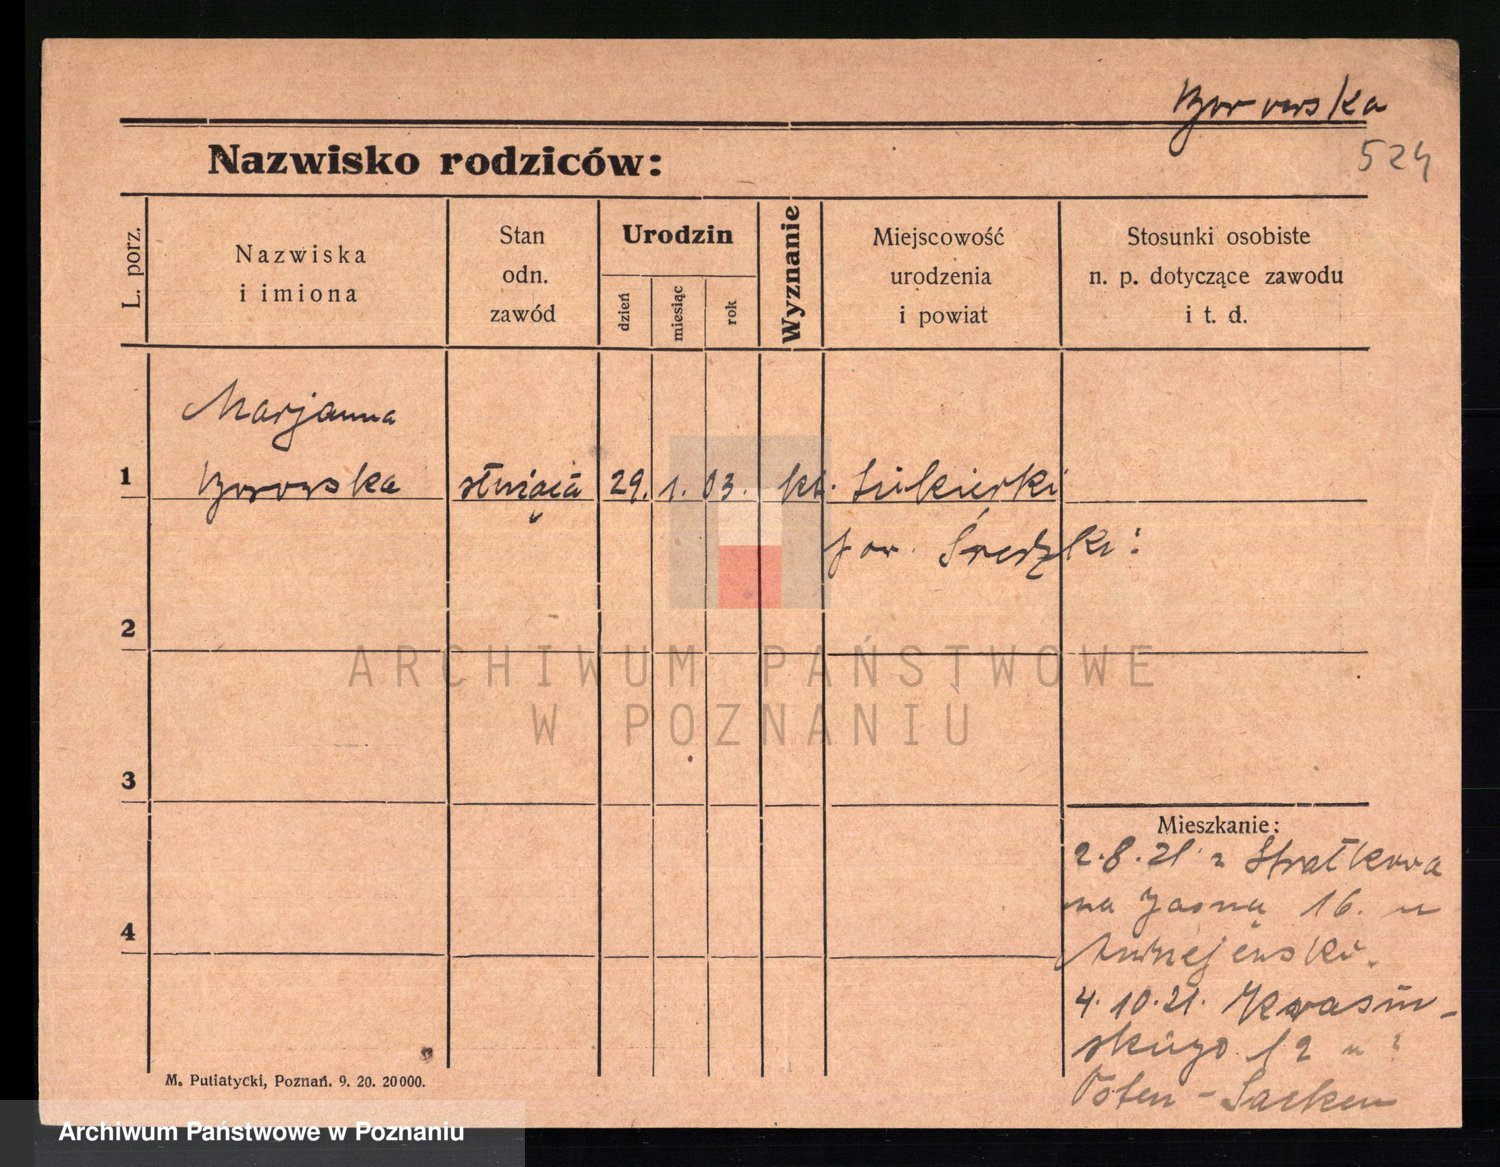 524
Nazwisko rodziców:
L. porz.
Nazwiska
i imiona
Stan
odn.
zawód
Urodzin
dzień
miesiąc
rok
Wyznanie
Miejscowość
urodzenia
i powiat
Stosunki osobiste
n. p. dotyczące zawodu
i t. d.
Marjanna
1
służąca 29. 1. 03. kt.
pow. Średzki
2
ARCHIWUM PAŃSTWOWE
W POZNANIU
3
Mieszkanie:
2.8.21 z Strałkowa
na Jasna 16. u
4
Andrzejewski.
4.10.21. Krasiń-
skiego 12 u
Sacken
M. Putiatycki, Poznań. 9. 20. 20000.
Archiwum Państwowe w Poznaniu